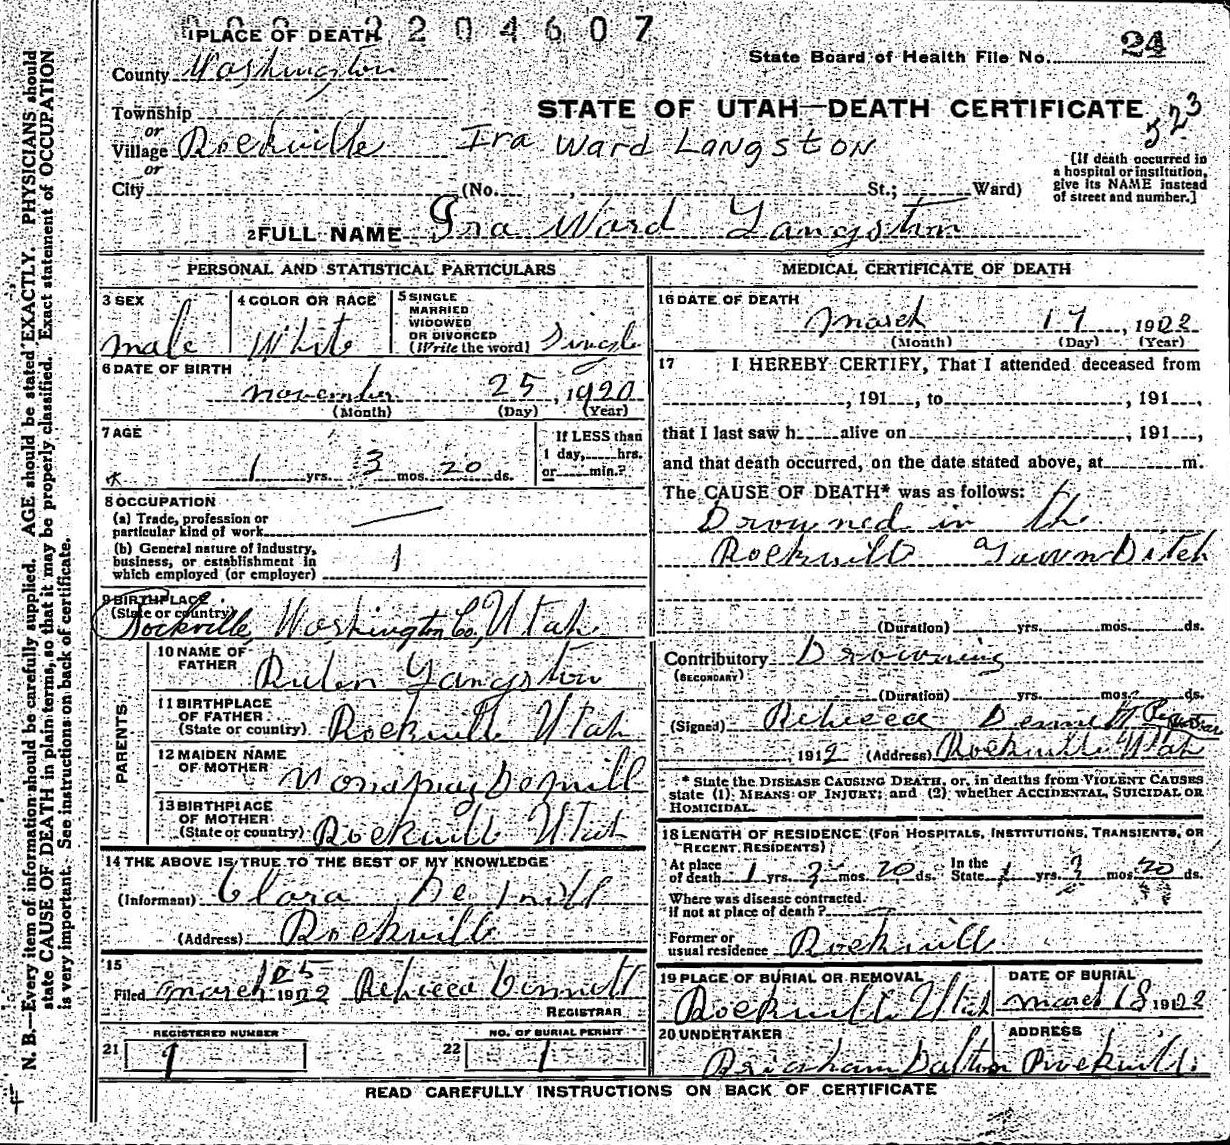 2204607
1 PLACE OF DEATH
State Board of Health File No. 24
County Washington
STATE OF UTAH—DEATH CERTIFICATE
523
Township
or
Village Rockville
Ira Ward Langston
or
City (No. , St.; Ward)
[If death occurred in
a hospital or institution,
give its NAME instead
of street and number.]
2 FULL NAME Ira Ward Langston
PERSONAL AND STATISTICAL PARTICULARS
3 SEX
male
4 COLOR OR RACE
White
5 SINGLE
MARRIED
WIDOWED
OR DIVORCED
(Write the word) Single
6 DATE OF BIRTH
november 25, 1920
(Month) (Day) (Year)
7 AGE
1 yrs. 3 mos. 20 ds.
If LESS than
1 day, hrs.
or min.?
8 OCCUPATION
(a) Trade, profession or
particular kind of work
(b) General nature of industry,
business, or establishment in
which employed (or employer)
9 BIRTHPLACE
(State or country)
Rockville, Washington Co., Utah
PARENTS
10 NAME OF
FATHER Langston
11 BIRTHPLACE
OF FATHER
(State or country) Rockville Utah
12 MAIDEN NAME
OF MOTHER Demill
13 BIRTHPLACE
OF MOTHER
(State or country) Rockville Utah
14 THE ABOVE IS TRUE TO THE BEST OF MY KNOWLEDGE
(Informant) Clara DeMill
(Address) Rockville
15
Filed march 1922 Rebecca Dennett
REGISTRAR
REGISTERED NUMBER
21
NO. OF BURIAL PERMIT
22 1
MEDICAL CERTIFICATE OF DEATH
16 DATE OF DEATH
march 17, 1922
(Month) (Day) (Year)
17 I HEREBY CERTIFY, That I attended deceased from
, 191 , to , 191 ,
that I last saw h alive on , 191 ,
and that death occurred, on the date stated above, at m.
The CAUSE OF DEATH* was as follows:
Drowned in the
Rockville Town Ditch
(Duration) yrs. mos. ds.
Contributory Drowning
(SECONDARY)
(Duration) yrs. mos. ds.
(Signed) Rebecca Dennett Registrar
, 1912 (Address) Rockville Utah
* State the DISEASE CAUSING DEATH, or, in deaths from VIOLENT CAUSES
state (1) MEANS OF INJURY; and (2) whether ACCIDENTAL, SUICIDAL OR
HOMICIDAL.
18 LENGTH OF RESIDENCE (FOR HOSPITALS, INSTITUTIONS, TRANSIENTS, OR
RECENT RESIDENTS)
At place
of death 1 yrs. 3 mos. 20 ds.
In the
State 1 yrs. 3 mos. 20 ds.
Where was disease contracted.
if not at place of death?
Former or
usual residence Rockvill
19 PLACE OF BURIAL OR REMOVAL
Rockville Utah
DATE OF BURIAL
march 18 1922
20 UNDERTAKER
Brigham Dalton
ADDRESS
Rockvill
READ CAREFULLY INSTRUCTIONS ON BACK OF CERTIFICATE
N. B.—Every item of information should be carefully supplied. AGE should be stated EXACTLY. PHYSICIANS should
state CAUSE OF DEATH in plain terms, so that it may be properly classified. Exact statement of OCCUPATION
is very important. See instructions on back of certificate.